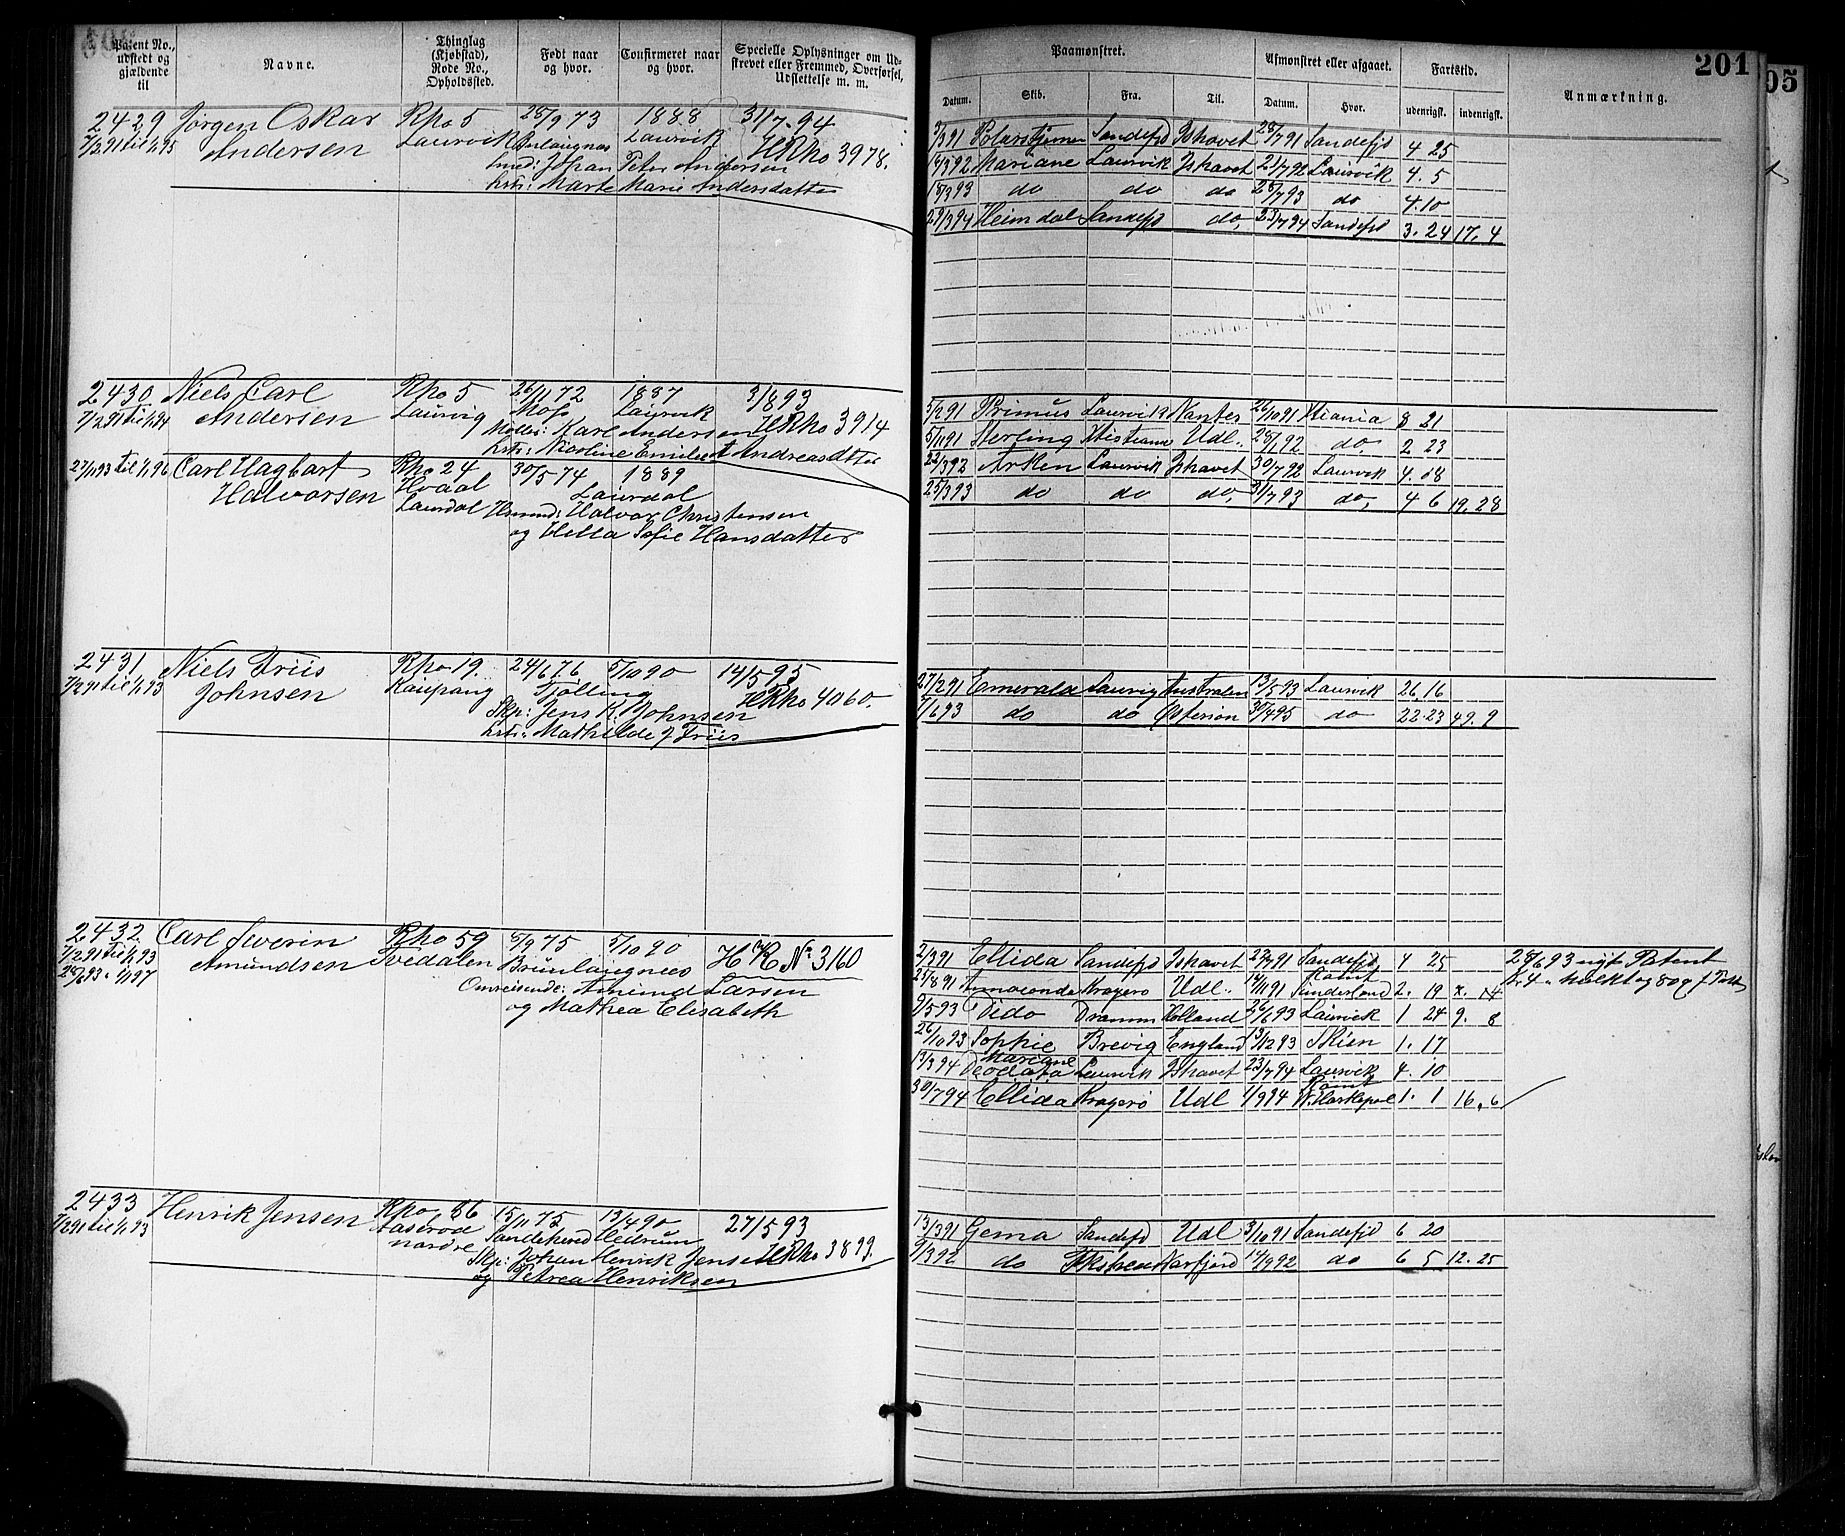 201
05
Patent No., udstedt og gjældende til
Navne.
Thinglag (Kjøbstad), Rode No., Opholdssted.
Født naar og hvor.
Confirmeret naar og hvor.
Specielle Oplysninger om Udskrevet eller Fremmed, Overførsel, Udslettelse m. m.
Paamønstret.
Datum. Skib. Fra. Til.
Afmønstret eller afgaaet.
Datum. Hvor.
Fartstid.
udenrigsk. indenrigsk.
Anmærkning.
2429 Jørgen Oskar Rno 5 28/9 73 1888 31/7.94
7/2 91 til 1/1 95 Andersen Laurvik Laurvik HRno 3978.
Peter Andersen
Marte Marie Andersdatter
Polarstjernen Sandefjd Ishavet 28/7 91 Sandefjd 4 25
Mariane Laurvik Ishavet 21/7 92 Laurvik 4. 5
18/3 93 do do do 28/7 93 do 4. 10
29/3 94 Heimdal Sandefjd do, 23/7 94 Sandefjd 3. 24 17. 4
2430 Niels Carl Rno 5 26/11 72 1887 3/8 93
7/2 91 til 1/1 94 Andersen Laurvig Moss Laurvik HRno 3914
Karl Andersen
Nicoline Emilie Andreasdtter
5/2 91 Primus Laurvik Nantes 26/10 91 Xtiania 8 21
5/11 91 Sterling Udl. 28/1 92 do, 2 23
22/3 92 Arken Laurvik Ishavet 30/7 92 Laurvik 4. 8
25/3 93 do do do, 31/7 93 do, 4 6 19. 28
27/11 93 til 1/1 96 Carl Hagbart Rno 24 30/5 74 1889
Halvorsen Hvaal Laurdal
Laurdal Husmd: Halvor Christensen
og Hella Sofie Hansdatter
2431 Niels Friis Rno 19. 24/6 76 5/10 90 14/5 95
7/2 91 til 1/1 93 Johnsen Kaupang Tjølling HRno 4060.
Skp: Jens K. Johnsen
Mathilde J Friis
27/2 91 Esmeralda Laurvig Australien 13/5 93 Laurvik 26. 16
7/6 93 do do do 22. 23 49. 9
2432 Carl Severin Rno 59 8/9 75 5/10 90 HR No 3160
7/2 91 til 1/1 93 Amundsen Tvedalen Brunlangnes
28/6 93 " 1/1 97 Omreisende: Amund Larsen
og Mathea Elisabeth
2/3 91 Ellida Sandefjd Ishavet 22/7 91 Sandefjd 4 25
25/8 91 Annaconda Kragerø Udl. 14/11 91 Sunderland 2. 19
9/5 93 Dido Dramm Holland 26/6 93 Laurvik 1 24 9. 8
26/10 93 Sophie Brevig England 13/12 93 Skien 1. 17
13/3 94 Mariane Laurvik Ishavet 23/7 94 Laurvik 4. 10
30/7 94 Ellida Kragerø Udl 1/9 94 1. 1 16. 6
28/6 93 nyt Patent
2433 Henrik Jensen Rno 66 15/11 75 13/4 90 27/5 93
7/2 91 til 1/1 93 Aaserød Sandeherred Hedrum HRno 3899.
nordre Skp: Johan Henrik Jensen
og Petrea Henriksen
13/3 91 Gema Sandefjd Udl 3/10 91 Sandefjd 6 20
9/3 92 do 14/9 92 do 6 5 12. 25